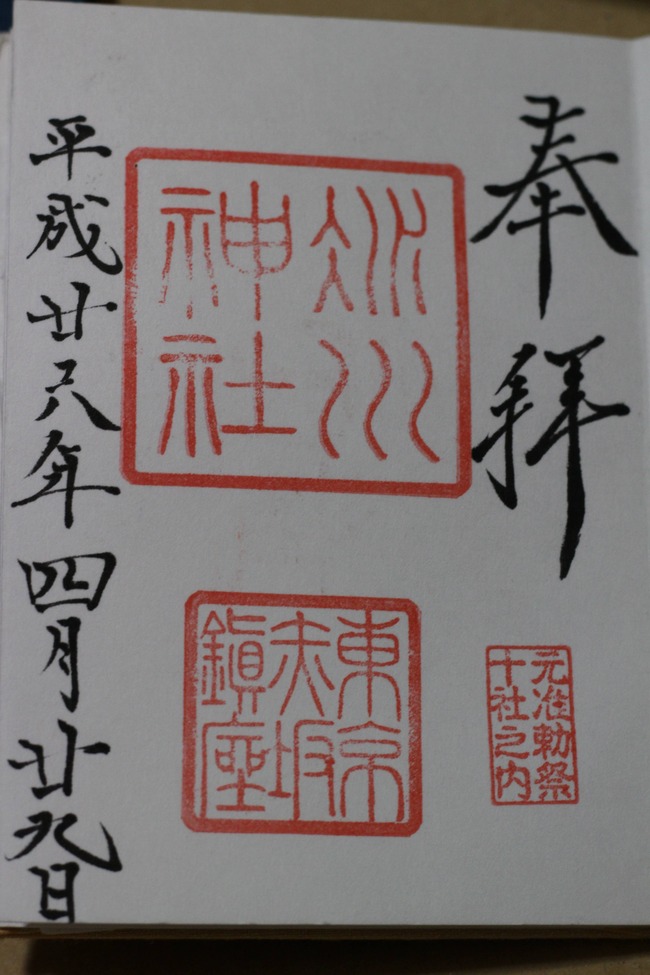 奉拝
氷川
神社
東京
赤坂
鎮座
元准勅祭
十社之内
平成廿八年四月廿九日